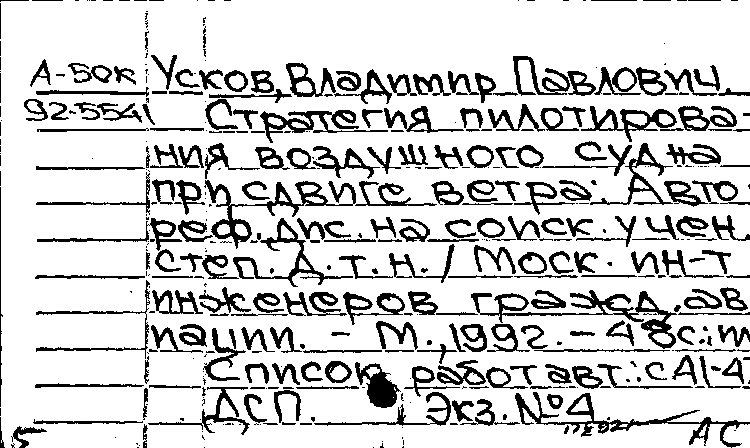 А-БОК Усков, Владимир Павлович.
92-5541 Стратегия пилотирова-
ния воздушного судна
при сдвиге ветра: Авто
реф. дис. на соиск. учен.
степ. д.т.н. / Моск. ин-т
инженеров гражд. ав
иации. - М., 1992. - 48с.: и
Список работ авт.: с 41-4
ДСП. Экз. №4
5 АС